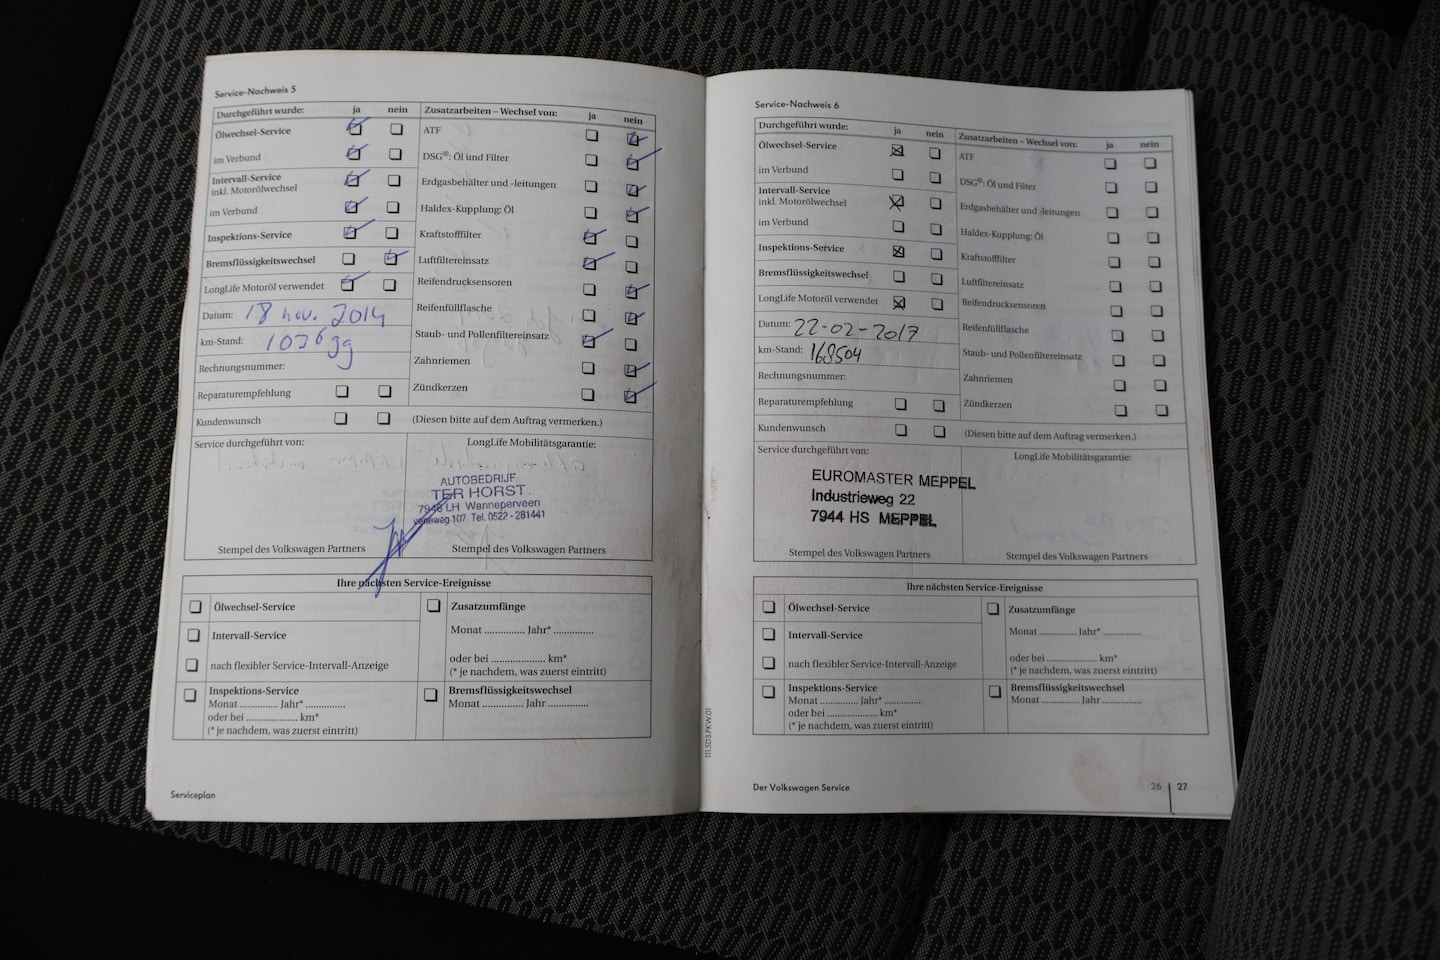 Service-Nachweis 5
Durchgeführt wurde: ja nein
Ölwechsel-Service
im Verbund
Intervall-Service
inkl. Motorölwechsel
im Verbund
Inspektions-Service
Bremsflüssigkeitswechsel
LongLife Motoröl verwendet
Datum: 18 nov. 2014
km-Stand:
Rechnungsnummer:
Reparaturempfehlung
Kundenwunsch
Zusatzarbeiten – Wechsel von: ja nein
ATF
DSG®: Öl und Filter
Erdgasbehälter und -leitungen
Haldex-Kupplung: Öl
Kraftstofffilter
Luftfiltereinsatz
Reifendrucksensoren
Reifenfüllflasche
Staub- und Pollenfiltereinsatz
Zahnriemen
Zündkerzen
(Diesen bitte auf dem Auftrag vermerken.)
Service durchgeführt von:
LongLife Mobilitätsgarantie:
AUTOBEDRIJF
TER HORST
7946 LH Wanneperveen
Veneweg 107 Tel. 0522 - 281441
Stempel des Volkswagen Partners
Stempel des Volkswagen Partners
Ihre nächsten Service-Ereignisse
Ölwechsel-Service
Intervall-Service
nach flexibler Service-Intervall-Anzeige
Inspektions-Service
Monat .............. Jahr* ..............
oder bei .................... km*
(* je nachdem, was zuerst eintritt)
Zusatzumfänge
Monat .............. Jahr* ..............
oder bei .................... km*
(* je nachdem, was zuerst eintritt)
Bremsflüssigkeitswechsel
Monat .............. Jahr ..............
Serviceplan
111.5D3.PKW.01
Service-Nachweis 6
Durchgeführt wurde: ja nein
Ölwechsel-Service
im Verbund
Intervall-Service
inkl. Motorölwechsel
im Verbund
Inspektions-Service
Bremsflüssigkeitswechsel
LongLife Motoröl verwendet
Datum: 22-02-2017
km-Stand: 168504
Rechnungsnummer:
Reparaturempfehlung
Kundenwunsch
Zusatzarbeiten – Wechsel von: ja nein
ATF
DSG®: Öl und Filter
Erdgasbehälter und -leitungen
Haldex-Kupplung: Öl
Kraftstofffilter
Luftfiltereinsatz
Reifendrucksensoren
Reifenfüllflasche
Staub- und Pollenfiltereinsatz
Zahnriemen
Zündkerzen
(Diesen bitte auf dem Auftrag vermerken.)
Service durchgeführt von:
LongLife Mobilitätsgarantie:
EUROMASTER MEPPEL
Industrieweg 22
7944 HS MEPPEL
Stempel des Volkswagen Partners
Stempel des Volkswagen Partners
Ihre nächsten Service-Ereignisse
Ölwechsel-Service
Intervall-Service
nach flexibler Service-Intervall-Anzeige
Inspektions-Service
Monat .............. Jahr* ..............
oder bei .................... km*
(* je nachdem, was zuerst eintritt)
Zusatzumfänge
Monat .............. Jahr* ..............
oder bei .................... km*
(* je nachdem, was zuerst eintritt)
Bremsflüssigkeitswechsel
Monat .............. Jahr ..............
Der Volkswagen Service
26 27